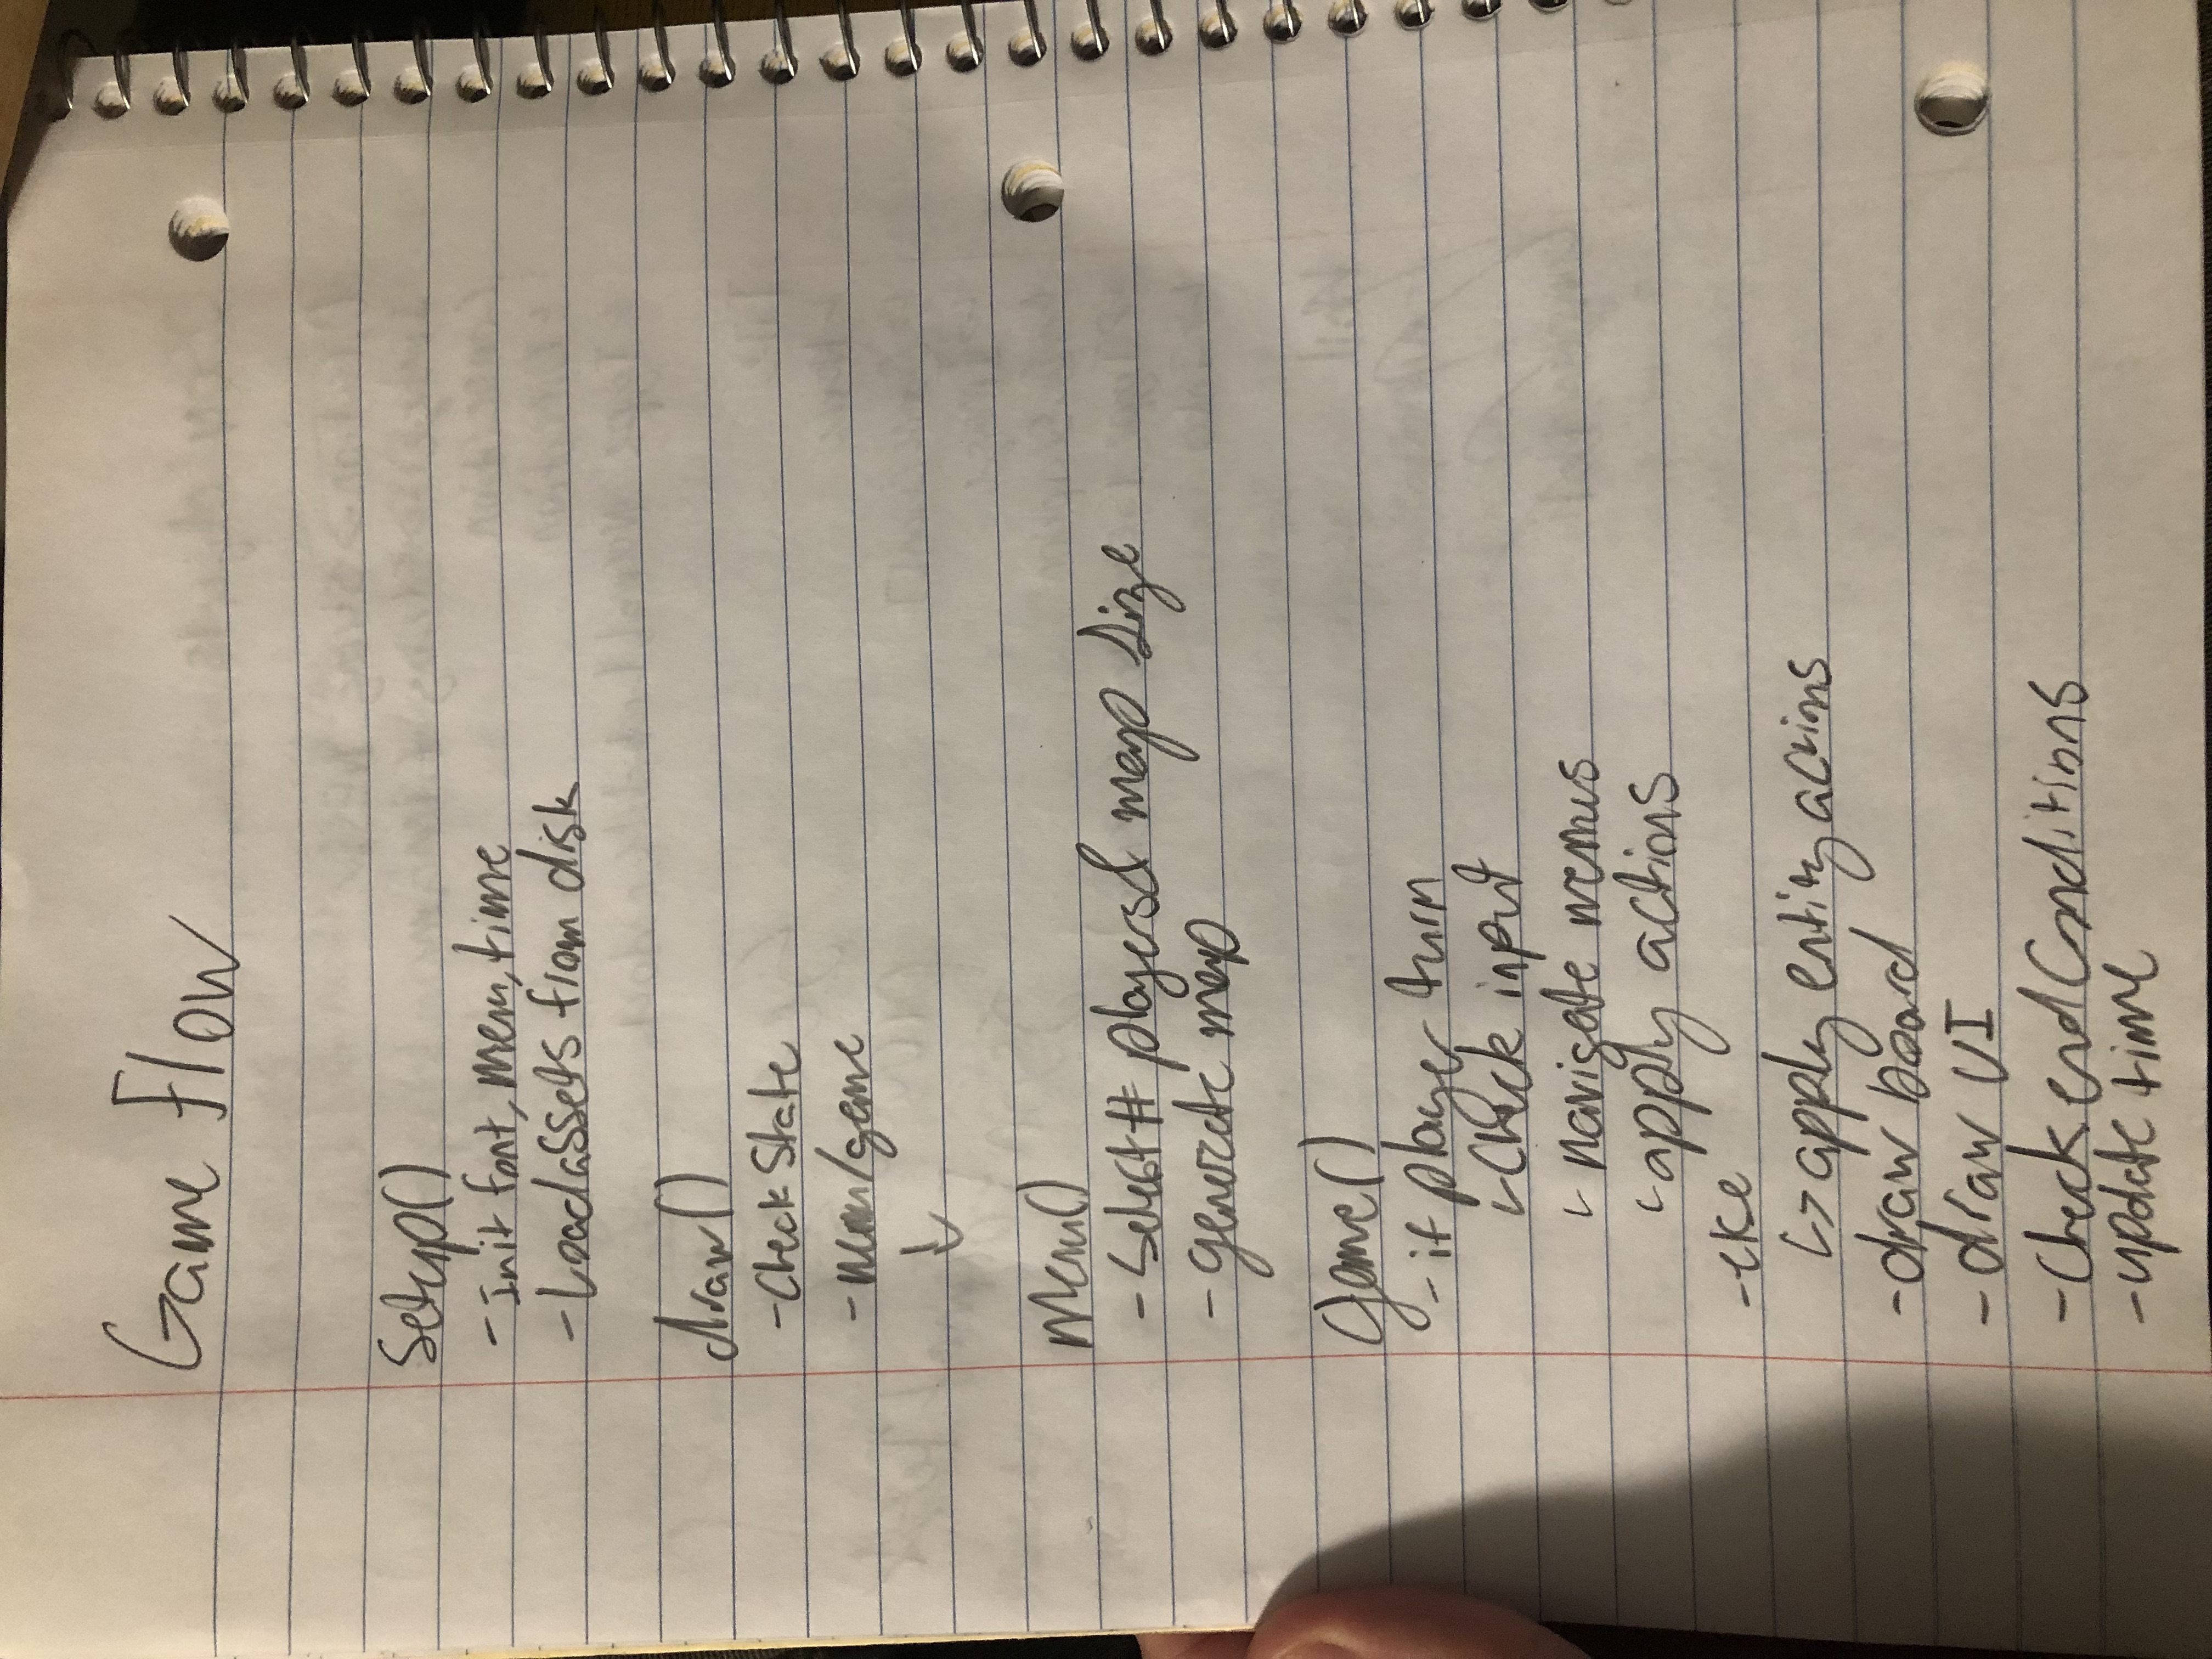 Game Flow
Setup()
- Init font, menu, time
- Load assets from disk
draw()
- Check State
- menu/game
↓
Menu()
- Select # players & map size
- generate map
Game()
- if player turn
↳ Check input
↳ navigate menus
↳ apply actions
- else
↳ apply entity actions
- draw board
- draw UI
- Check end Conditions
- update time